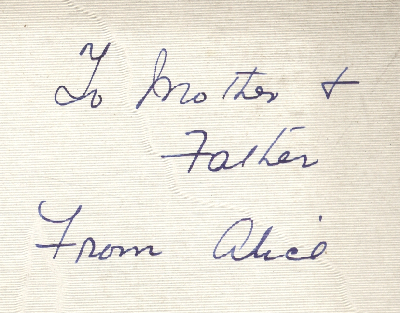 To Mother +
Father
From Alice